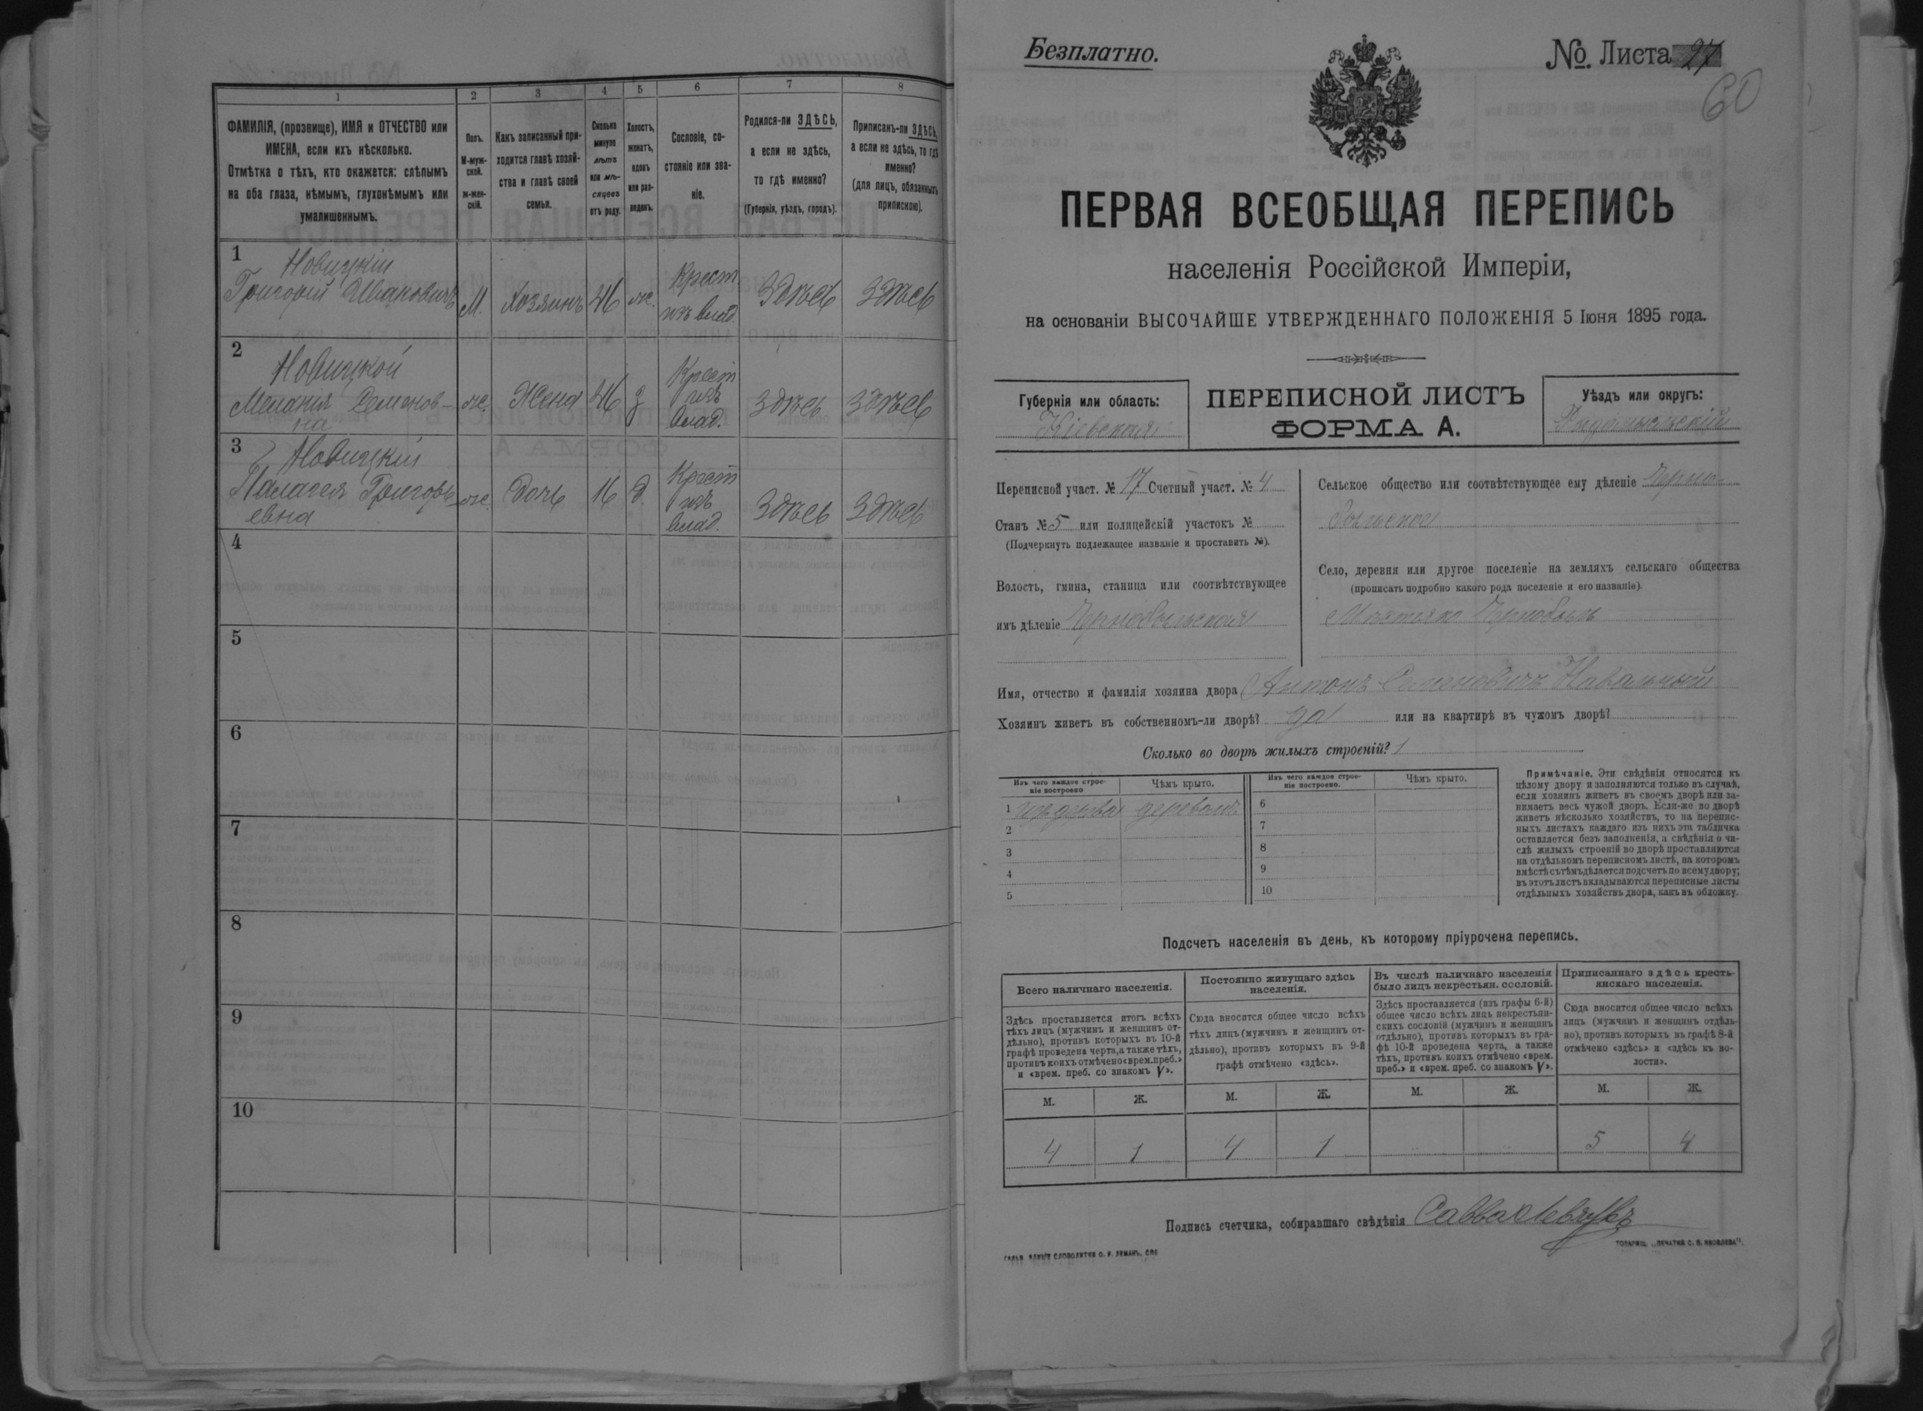 1 2 3 4 5 6 7 8
ФАМИЛІЯ, (прозвище), ИМЯ и ОТЧЕСТВО или
ИМЕНА, если ихъ нѣсколько.
Отмѣтка о тѣхъ, кто окажется: слѣпымъ
на оба глаза, нѣмымъ, глухонѣмымъ или
умалишеннымъ.
Полъ.
М-муж-
ской.
ж-жен-
скій.
Какъ записанный при-
ходится главѣ хозяй-
ства и главѣ своей
семьи.
Сколько
минуло
лѣтъ
или мѣ-
сяцевъ
отъ роду.
Холостъ,
женатъ,
вдовъ
или раз-
веденъ.
Сословіе, со-
стояніе или зва-
ніе.
Родился-ли ЗДѢСЬ,
а если не здѣсь,
то гдѣ именно?
(Губернія, уѣздъ, городъ).
Приписанъ-ли ЗДѢСЬ,
а если не здѣсь, то гдѣ
именно?
(для лицъ, обязанныхъ
припискою).
1
Новицкій
Григорій Ивановичъ М. Хозяинъ 46 ж. Крест. изъ влад. Здѣсь Здѣсь
2
Новицкой
Меланія Семенов-
на ж. Жена 46 з Крест изъ влад. Здѣсь Здѣсь
3
Новицкій
Палагея Григорь-
евна ж. Дочь 16 д. Крест изъ влад. Здѣсь Здѣсь
4
5
6
7
8
9
10
Безплатно.
№. Листа 27
60
ПЕРВАЯ ВСЕОБЩАЯ ПЕРЕПИСЬ
населенія Россійской Имперіи,
на основаніи ВЫСОЧАЙШЕ УТВЕРЖДЕННАГО ПОЛОЖЕНІЯ 5 Іюня 1895 года.
Губернія или область:
Кіевская
ПЕРЕПИСНОЙ ЛИСТЪ
ФОРМА А.
Уѣздъ или округъ:
Радомысльскій
Переписной участ. № 17 Счетный участ. № 4
Станъ № 5 или полицейскій участокъ №
(Подчеркнуть подлежащее названіе и проставить №).
Волость, гмина, станица или соотвѣтствующее
имъ дѣленіе Чернобыльская
Сельское общество или соотвѣтствующее ему дѣленіе Черно-
быльское
Село, деревня или другое поселеніе на земляхъ сельскаго общества
(прописать подробно какого рода поселеніе и его названіе).
Чернобыль
Имя, отчество и фамилія хозяина двора Антонъ Навальный
Хозяинъ живетъ въ собственномъ-ли дворѣ? да или на квартирѣ въ чужомъ дворѣ?
Сколько во дворѣ жилыхъ строеній? 1
Изъ чего каждое строе-
ніе построено
Чѣмъ крыто.
Изъ чего каждое строе-
ніе построено.
Чѣмъ крыто.
1 изъ дерева деревомъ 6
2 7
3 8
4 9
5 10
Примѣчаніе. Эти свѣдѣнія относятся къ
цѣлому двору и заполняются только въ случаѣ,
если хозяинъ живетъ въ своемъ дворѣ или за-
нимаетъ весь чужой дворъ. Если-же во дворѣ
живетъ нѣсколько хозяйствъ, то на перепис-
ныхъ листахъ каждаго изъ нихъ эта табличка
оставляется безъ заполненія, а свѣдѣнія о чи-
слѣ жилыхъ строеній во дворѣ проставляются
на отдѣльномъ переписномъ листѣ, на которомъ
вмѣстѣ съ тѣмъ дѣлается подсчетъ по всему двору;
въ этотъ листъ вкладываются переписные листы
отдѣльныхъ хозяйствъ двора, какъ въ обложку.
Подсчетъ населенія въ день, къ которому пріурочена перепись.
Всего наличнаго населенія.
Здѣсь проставляется итогъ всѣхъ
тѣхъ лицъ (мужчинъ и женщинъ от-
дѣльно), противъ которыхъ въ 10-й
графѣ проведена черта, а также тѣхъ,
противъ коихъ отмѣчено «врем. преб.»
и «врем. преб. со знакомъ V».
Постоянно живущаго здѣсь
населенія.
Сюда вносится общее число всѣхъ
тѣхъ лицъ (мужчинъ и женщинъ от-
дѣльно), противъ которыхъ въ 9-й
графѣ отмѣчено «здѣсь».
Въ числѣ наличнаго населенія
было лицъ некрестьян. сословій.
Здѣсь проставляется (изъ графы 6-й)
общее число всѣхъ лицъ некрестьян-
скихъ сословій (мужчинъ и женщинъ
отдѣльно), противъ которыхъ въ гра-
фѣ 10-й проведена черта, а также
тѣхъ, противъ коихъ отмѣчено «врем.
преб.» и «врем. преб. со знакомъ V».
Приписаннаго здѣсь кресть-
янскаго населенія.
Сюда вносится общее число всѣхъ
лицъ (мужчинъ и женщинъ отдѣль-
но), противъ которыхъ въ графѣ 8-й
отмѣчено «здѣсь» и «здѣсь къ во-
лости».
М. Ж. М. Ж. М. Ж. М. Ж.
4 1 4 1 5 4
Подпись счетчика, собиравшаго свѣдѣнія Савва
СЛОВОЛИТНЯ О. И. ЛЕМАНЪ, СПБ
ТОВАРИЩ. „ПЕЧАТНЯ С. П. ЯКОВЛЕВА“.